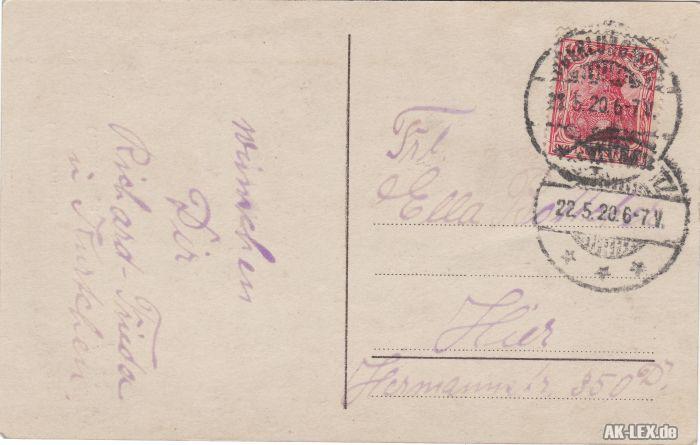 wünschen
Dir
Richard-Frieda
u
Frl.
Ella
Hier
Hermannstr. 350 D.
22.5.20.6-7.V.
22.5.20.6-7V.
AK-LEX.de